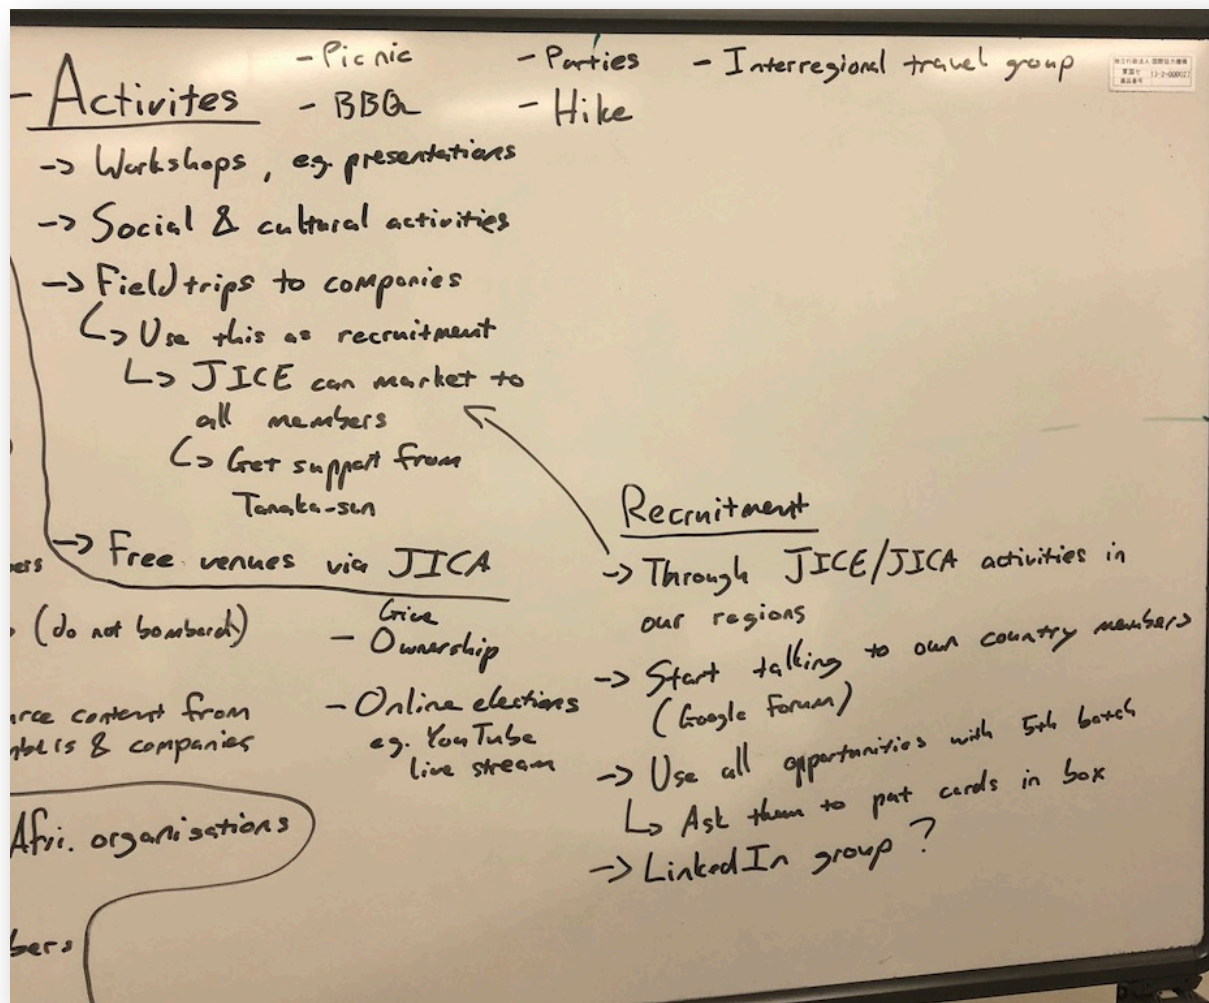 - Activites
- Picnic
- BBQ
- Parties
- Hike
- Interregional travel group
-> Workshops, eg. presentations
-> Social & cultural activities
-> Field trips to companies
↳ Use this as recruitment
↳ JICE can market to
all members
↳ Get support from
Tanaka-san
-> Free venues via JICA
(do not bombard)
content from
& companies
Afri. organisations
- Give
Ownership
- Online elections
eg. YouTube
live stream
Recruitment
-> Through JICE/JICA activities in
our regions
-> Start talking to own country members
(Google Forum)
-> Use all opportunities with 5th batch
↳ Ask them to put cards in box
-> LinkedIn group?
独立行政法人 国際協力機構